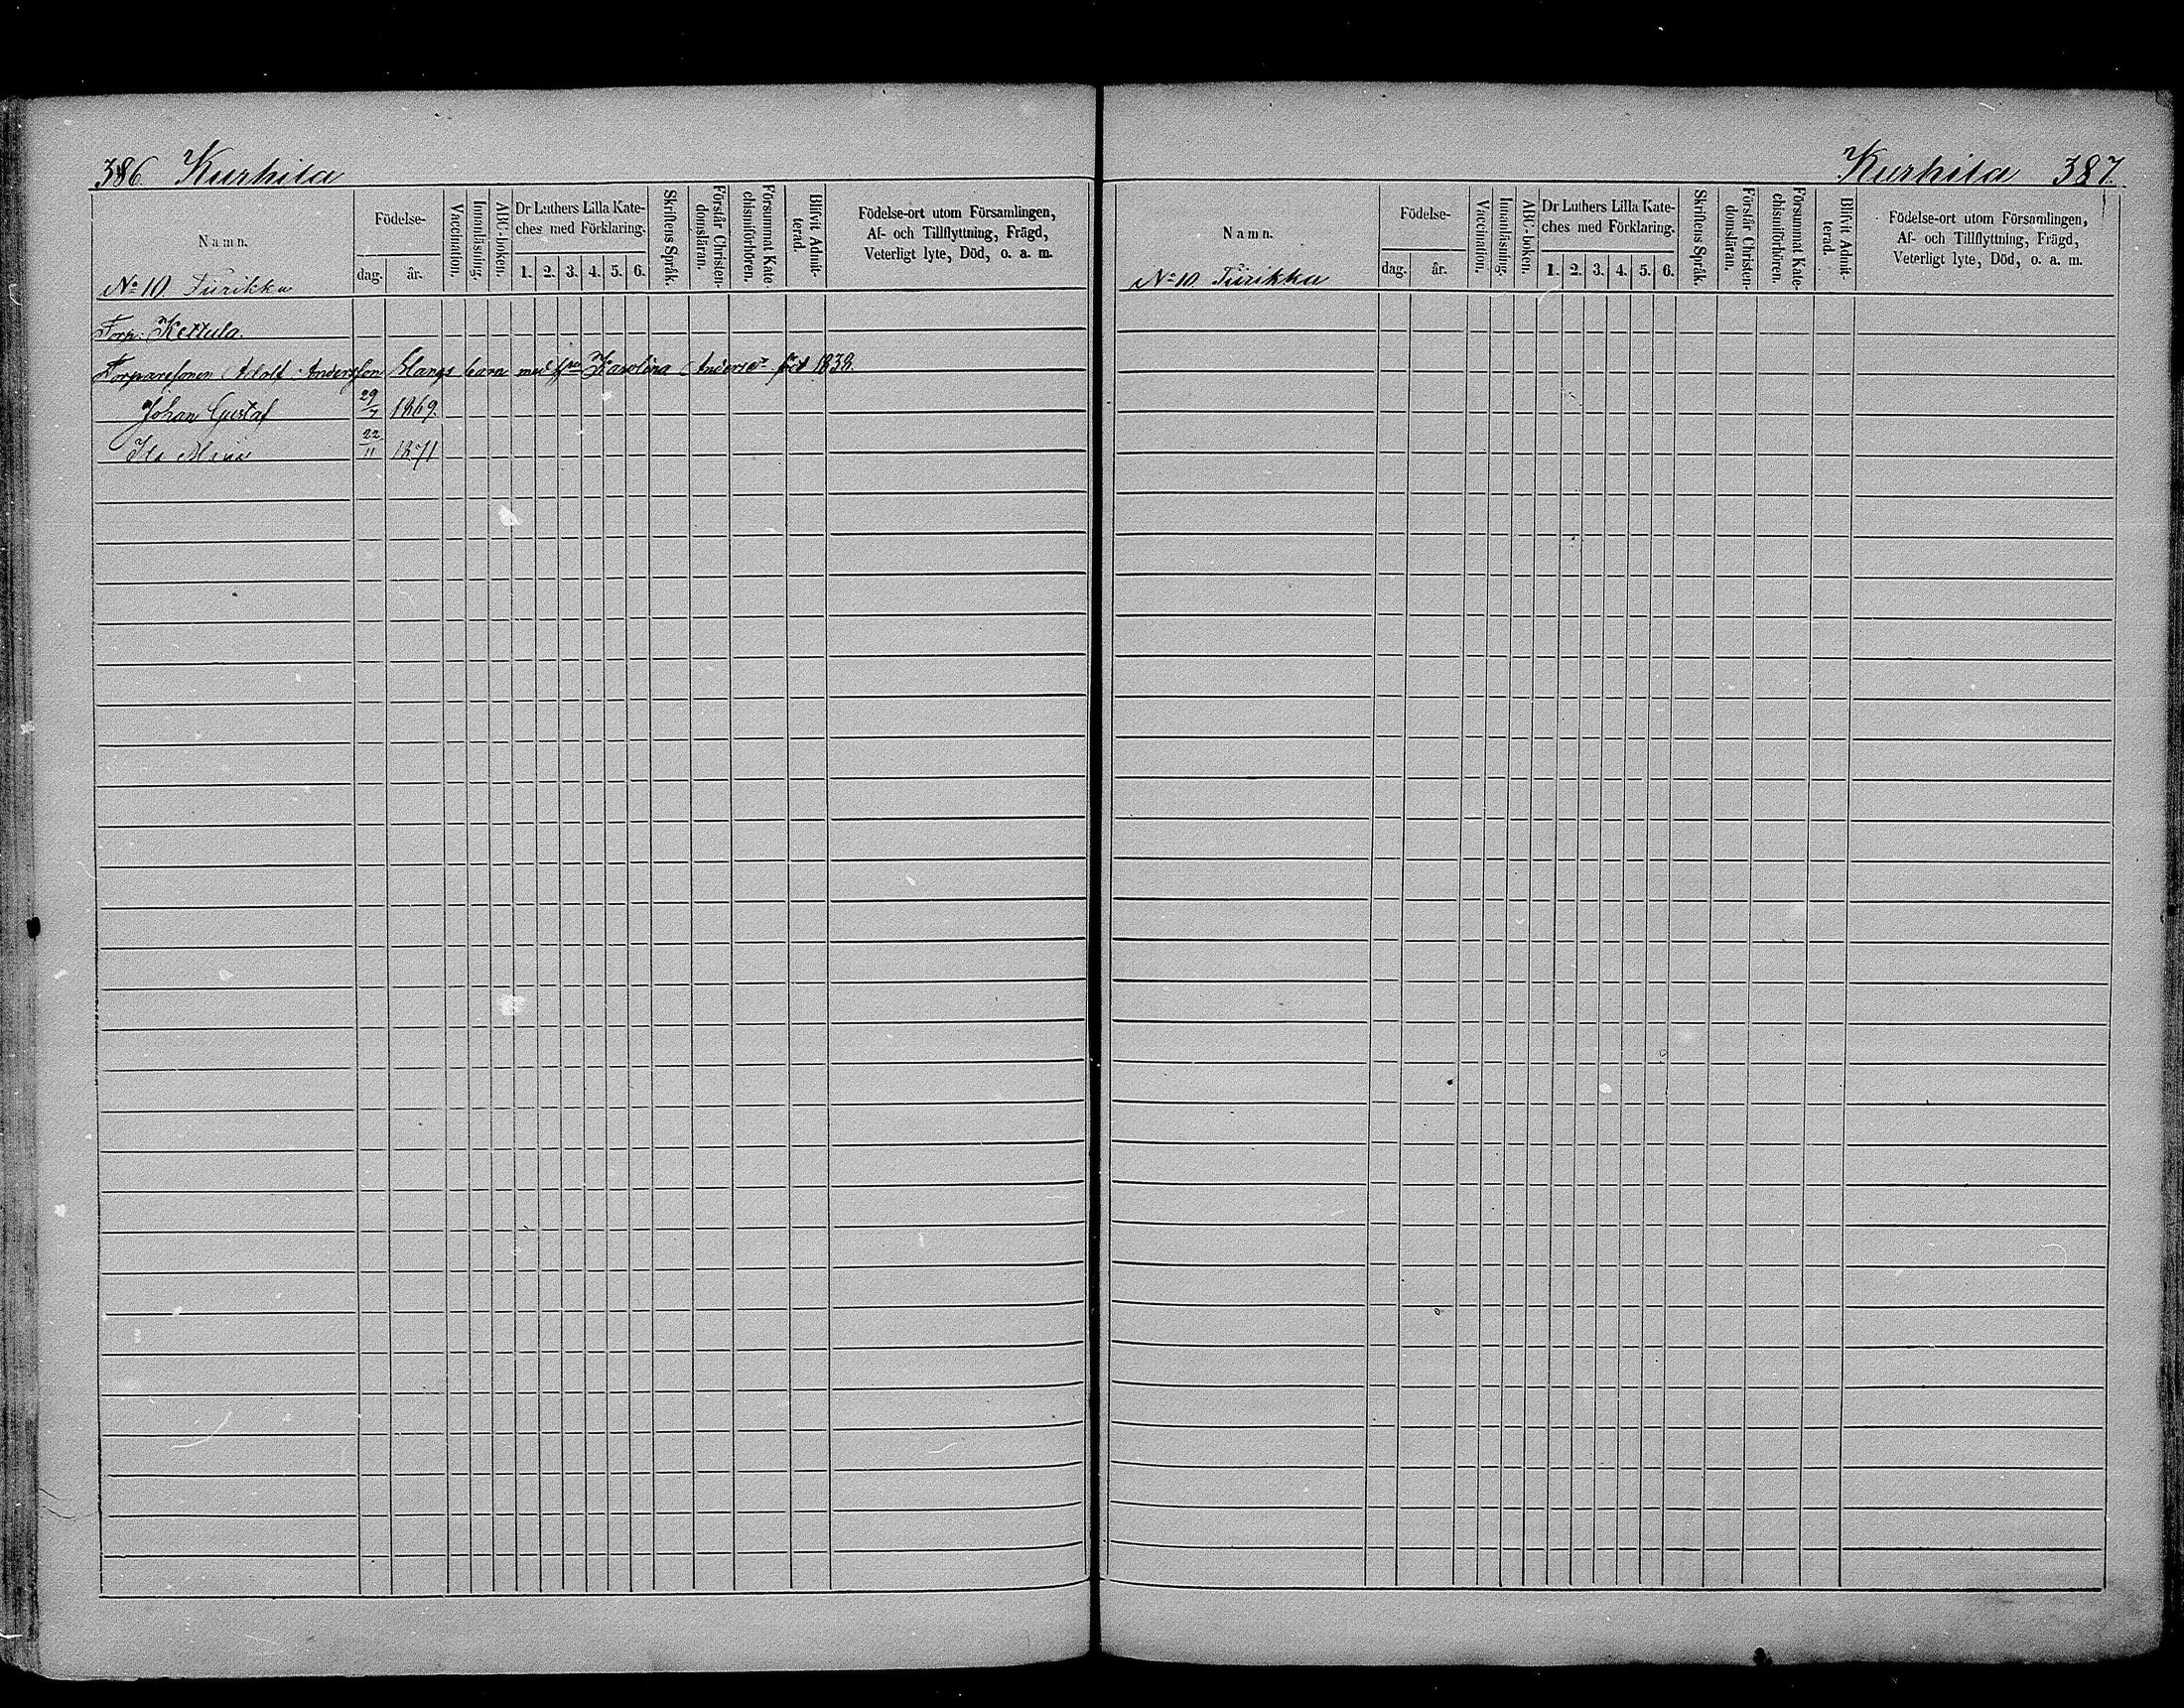 386. Kurhila
Namn.
Födelse-
dag. år.
Vaccination.
Innanläsning.
ABC-boken.
Dr Luthers Lilla Kate-
ches med Förklaring.
1. 2. 3. 4. 5. 6.
Skriftens Språk.
Förstår Christen-
domsläran.
Försummat Kate-
chismiförhören.
Blifvit Admit-
terad.
Födelse-ort utom Församlingen,
Af- och Tillflyttning, Frägd,
Veterligt lyte, Död, o. a. m.
No 10. Türikka
Torp. Kettula.
Torparesonen Adolf Andersson Slangs barn med Karolina Andersdr född 1838
Johan Gustaf 29/7 1869.
Ida Mina 22/11 1871
Kurhila 387.
Namn.
Födelse-
dag. år.
Vaccination.
Innanläsning.
ABC-boken.
Dr Luthers Lilla Kate-
ches med Förklaring.
1. 2. 3. 4. 5. 6.
Skriftens Språk.
Förstår Christen-
domsläran.
Försummat Kate-
chismiförhören.
Blifvit Admit-
terad.
Födelse-ort utom Församlingen,
Af- och Tillflyttning, Frägd,
Veterligt lyte, Död, o. a. m.
No 10. Türikka